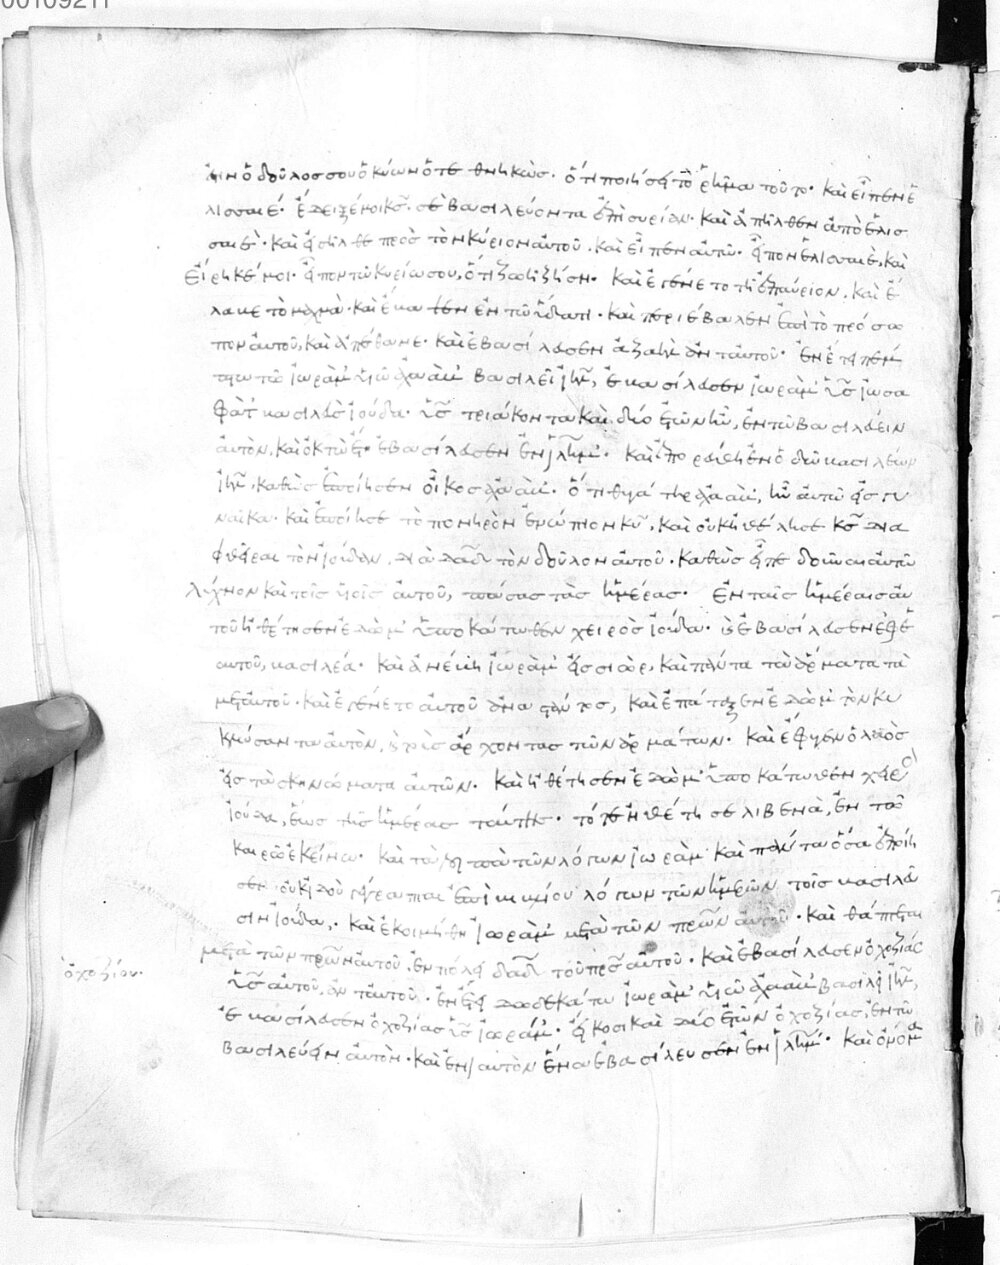 00109211
ἐστὶν ὁ δοῦλος σου ὁ κύων ὁ τεθνηκὼς· ὅτι ποιήσει τὸ ῥῆμα τοῦτο· καὶ εἶπεν ἐ
λισσαιέ· ἔδειξέ μοι κ̅ς̅ σὲ βασιλεύοντα ἐπὶ συρίαν· καὶ ἀπῆλθεν ἀπὸ ἐλισ
σαιὲ· καὶ εἰσῆλθε πρὸς τὸν κύριον αὐτοῦ. καὶ εἶπεν αὐτῶ· εἶπον ἐλισσαιὲ, καὶ
εἴρηκέ μοι· εἶπον τῶ κυρίω σου, ὅτι ζωῆ ζήση· καὶ ἐγένετο τῆ ἐπαύριον, καὶ ἔ
λαβε τὸ μαχμὰ· καὶ ἔβαψεν ἐν τῶ ὕδατι· καὶ περιέβαλεν ἐπὶ τὸ πρόσω
πον αὐτοῦ, καὶ ἀπέθανε· καὶ ἐβασίλευσεν ἀζαὴλ ἀντ αὐτοῦ· ἐν ἔτει πέμ
πτω τῶ ἰωρὰμ υἱῶ ἀχαὰβ βασιλεῖ ι̅η̅λ̅, ἐβασίλευσεν ἰωρὰμ υ̅ς̅ ἰωσα
φὰτ βασιλεὺς ἰούδα· υ̅ς̅ τριάκοντα καὶ δύο ἐτῶν ἦν, ἐν τῶ βασιλεύειν
αὐτὸν, καὶ ὀκτὼ ἔτη ἐβασίλευσεν ἐν ἰ̅λ̅η̅μ̅· καὶ ἐπορεύθη ἐν ὁδῶ βασιλέων
ι̅η̅λ̅, καθὼς ἐποίησεν οἶκος ἀχαὰβ· ὅτι θυγάτηρ ἀχαὰβ, ἦν αὐτῶ εἰς γυ
ναῖκα· καὶ ἐποίησε τὸ πονηρὸν ἐνώπιον κ̅υ̅, καὶ οὐκ ἠθέλησε κ̅ς̅ δια
φθεῖραι τὸν ἰούδαν, διὰ δα̅δ̅ τὸν δοῦλον αὐτοῦ. καθὼς εἶπε δοῦναι αὐτῶ
λύχνον καὶ τοῖς υἱοῖς αὐτοῦ, πάσας τὰς ἡμέρας· ἐν ταῖς ἡμέραις αὐ
τοῦ ἠθέτησεν ἐδὼμ ὑποκάτωθεν χειρὸς ἰούδα· καὶ ἐβασίλευσεν ἐφ ἑ
αυτοῦ, βασιλέα· καὶ ἀνέβη ἰωρὰμ εἰς σιὼρ, καὶ πάντα τὰ ἅρματα τὰ
μετ αὐτοῦ· καὶ ἐγένετο αὐτοῦ ἀναστάντος, καὶ ἐπάταξεν ἐδὼμ τὸν κυ
κλώσαντα αὐτὸν, καὶ τοὺς ἄρχοντας τῶν ἁρμάτων· καὶ ἔφυγεν ὁ λαὸς
εἰς τὰ σκηνώματα αὐτῶν· καὶ ἠθέτησεν ἐδὼμ ὑποκάτωθεν χειρὸς
ἰούδα, ἕως τῆς ἡμέρας ταύτης· τότε ἠθέτησε λιβενὰ, ἐν τῶ
καιρῶ ἐκείνω· καὶ τὰ λοιπὰ τῶν λόγων ἰωρὰμ καὶ πάντα ὅσα ἐποίη
σεν οὐκ ἰδοὺ γέγραπται ἐπὶ βιβλίου λόγων τῶν ἡμερῶν τοῖς βασιλεῦ
σιν ἰούδα, καὶ ἐκοιμήθη ἰωρὰμ μετὰ τῶν π̅ρ̅ω̅ν̅ αὐτοῦ· καὶ θάπτεται
μετὰ τῶν π̅ρ̅ω̅ν̅ αὐτοῦ, ἐν πόλει δα̅δ̅ τοῦ π̅ρ̅ς̅ αὐτοῦ· καὶ ἐβασίλευσεν ὀχοζίας
υ̅ς̅ αὐτοῦ, ἀντ αὐτοῦ· ἐν ἔτει δωδεκάτω ἰωρὰμ υἱῶ ἀχαὰβ βασιλεῖ ι̅η̅λ̅,
ὀχοζίου·
ἐβασίλευσεν ὀχοζίας υ̅ς̅ ἰωρὰμ· εἴκοσι καὶ δύο ἐτῶν ὀχοζίας, ἐν τῶ
βασιλεύειν αὐτὸν· καὶ ἐνιαυτὸν ἕνα ἐβασίλευσεν ἐν ἰ̅λ̅η̅μ̅· καὶ ὄνομα